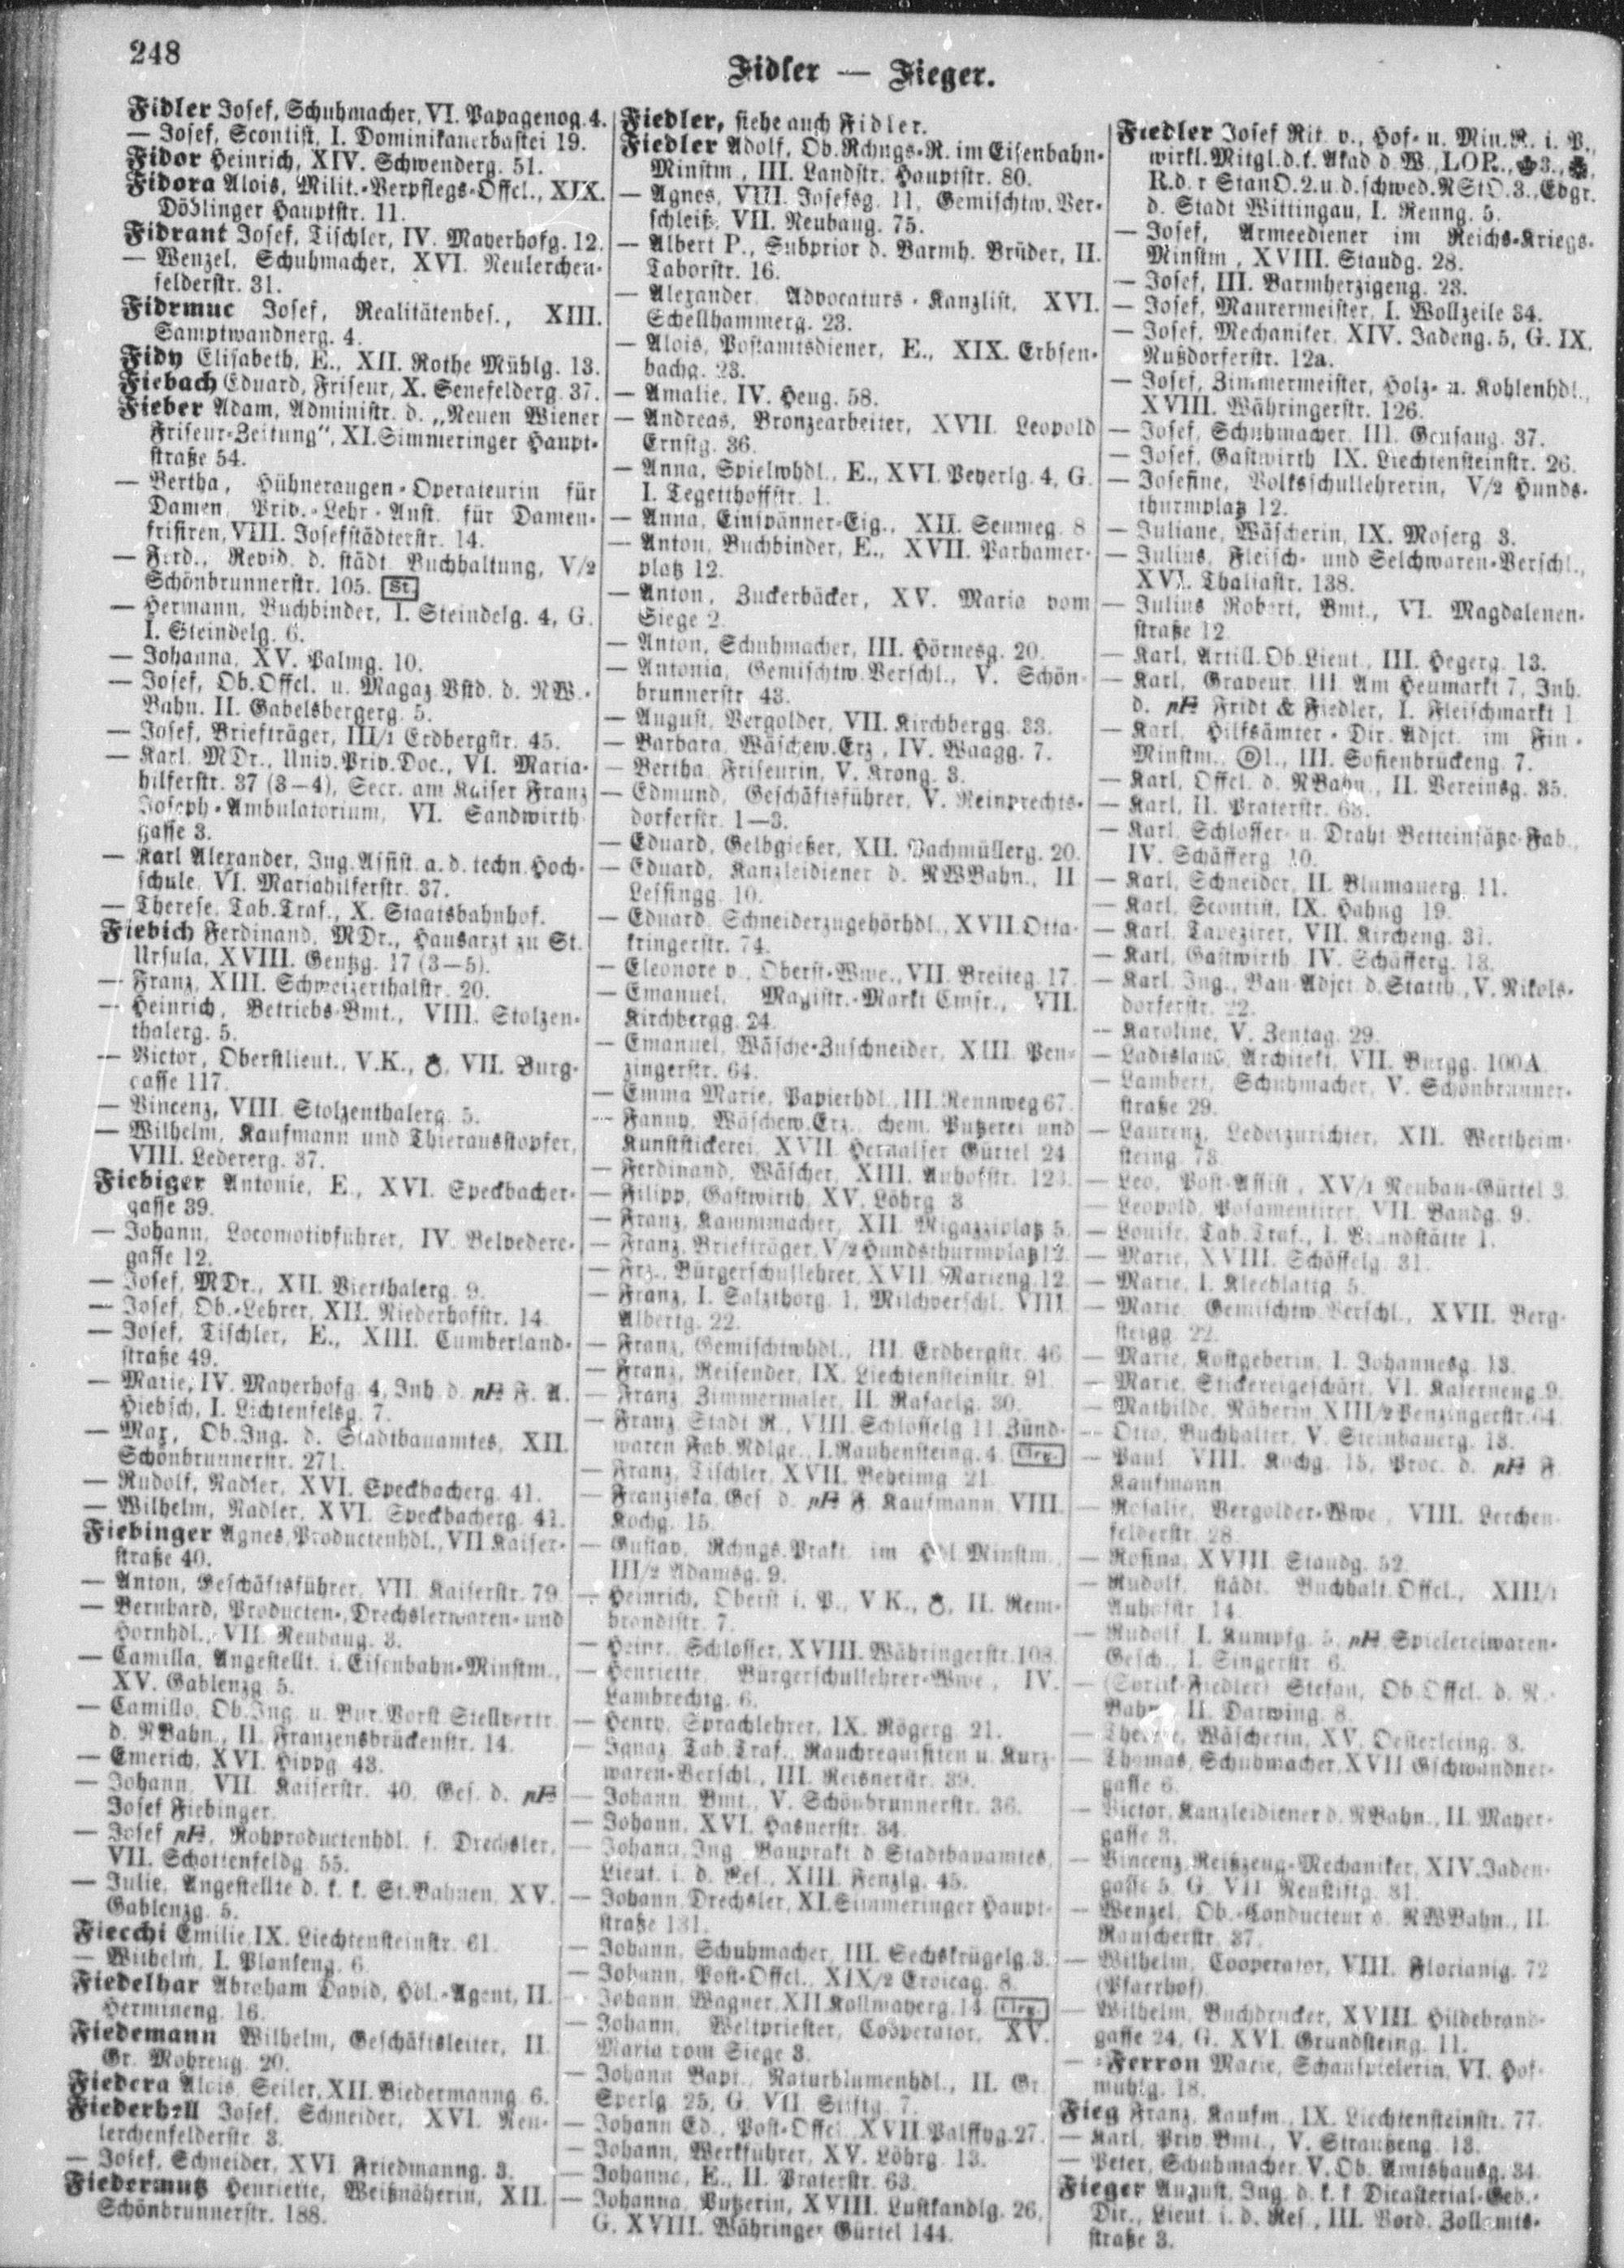 248
Fidler — Fieger.
Fidler Josef, Schuhmacher, VI. Papagenog. 4.
— Josef, Scontist, I. Dominikanerbastei 19.
Fidor Heinrich, XIV. Schwenderg. 51.
Fidora Alois, Milit.-Verpflegs-Offcl., XIX.
Döblinger Hauptstr. 11.
Fidrant Josef, Tischler, IV. Mayerhofg. 12.
— Wenzel, Schuhmacher, XVI. Neulerchen-
felderstr. 31.
Fidrmuc Josef, Realitätenbes., XIII.
Samptwandnerg. 4.
Fidy Elisabeth, E., XII. Rothe Mühlg. 13.
Fiebach Eduard, Friseur, X. Senefelderg. 37.
Fieber Adam, Administr. d. „Neuen Wiener
Friseur-Zeitung“, XI. Simmeringer Haupt-
straße 54.
— Bertha, Hühneraugen-Operateurin für
Damen, Priv.-Lehr-Anst. für Damen-
frisiren, VIII. Josefstädterstr. 14.
— Ferd., Revid. d. städt. Buchhaltung, V/2
Schönbrunnerstr. 105. St.
— Hermann, Buchbinder, I. Steindelg. 4, G.
I. Steindelg. 6.
— Johanna, XV. Palmg. 10.
— Josef, Ob.Offcl. u. Magaz.Vstd. d. NW.-
Bahn. II. Gabelsbergerg. 5.
— Josef, Briefträger, III/1 Erdbergstr. 45.
— Karl, MDr., Univ.Priv.Doc., VI. Maria-
hilferstr. 37 (3—4), Secr. am Kaiser Franz
Joseph-Ambulatorium, VI. Sandwirth-
gasse 3.
— Karl Alexander, Ing. Assist. a. d. techn. Hoch-
schule, VI. Mariahilferstr. 37.
— Therese, Tab.Traf., X. Staatsbahnhof.
Fiebich Ferdinand, MDr., Hausarzt zu St.
Ursula, XVIII. Gentzg. 17 (3—5).
— Franz, XIII. Schweizerthalstr. 20.
— Heinrich, Betriebs-Bmt., VIII. Stolzen-
thalerg. 5.
— Victor, Oberstlieut., V.K., VII. Burg-
gasse 117.
— Vincenz, VIII. Stolzenthalerg. 5.
— Wilhelm, Kaufmann und Thierausstopfer,
VIII. Ledererg. 37.
Fiebiger Antonie, E., XVI. Speckbacher-
gasse 39.
— Johann, Locomotivführer, IV. Belvedere-
gasse 12.
— Josef, MDr., XII. Vierthalerg. 9.
— Josef, Ob.-Lehrer, XII. Niederhofstr. 14.
— Josef, Tischler, E., XIII. Cumberland-
straße 49.
— Marie, IV. Mayerhofg. 4, Inh. d. F. A.
Hiebsch, I. Lichtenfelsg. 7.
— Max, Ob.Ing. d. Stadtbauamtes, XII.
Schönbrunnerstr. 271.
— Rudolf, Nadler, XVI. Speckbacherg. 41.
— Wilhelm, Nadler, XVI. Speckbacherg. 41.
Fiebinger Agnes, Productenhdl., VII. Kaiser-
straße 40.
— Anton, Geschäftsführer, VII. Kaiserstr. 79.
— Bernhard, Producten-, Drechslerwaren- und
Hornhdl., VII. Neubaug. 3.
— Camilla, Angestellt. i. Eisenbahn-Minstm.,
XV. Gablenzg. 5.
— Camillo, Ob.Ing. u. Bur.Vorst.Stellvertr.
d. NBahn., II. Franzensbrückenstr. 14.
— Emerich, XVI. Hippg. 43.
— Johann, VII. Kaiserstr. 40, Ges. d.
Josef Fiebinger.
— Josef, Rohproductenhdl. f. Drechsler,
VII. Schottenfeldg. 55.
— Julie, Angestellte d. k. k. St.Bahnen, XV.
Gablenzg. 5.
Fiecchi Emilie, IX. Liechtensteinstr. 61.
— Wilhelm, I. Plankeng. 6.
Fiedelhar Abraham David, Hdl.-Agent, II.
Hermineng. 16.
Fiedemann Wilhelm, Geschäftsleiter, II.
Gr. Mohreng. 20.
Fiedera Alois, Seiler, XII. Biedermanng. 6.
Fiederhell Josef, Schneider, XVI. Neu-
lerchenfelderstr. 3.
— Josef, Schneider, XVI. Friedmanng. 3.
Fiedermutz Henriette, Weißnäherin, XII.
Schönbrunnerstr. 188.
Fiedler, siehe auch Fidler.
Fiedler Adolf, Ob.Rchngs-R. im Eisenbahn-
Minstm., III. Landstr. Hauptstr. 80.
— Agnes, VIII. Josefsg. 11, Gemischtw.Ver-
schleiß, VII. Neubaug. 75.
— Albert P., Subprior d. Barmh. Brüder, II.
Taborstr. 16.
— Alexander, Advocaturs-Kanzlist, XVI.
Schellhammerg. 23.
— Alois, Postamtsdiener, E., XIX. Erbsen-
bachg. 23.
— Amalie, IV. Heug. 58.
— Andreas, Bronzearbeiter, XVII. Leopold
Ernstg. 36.
— Anna, Spielwhdl., E., XVI. Peyerlg. 4, G.
I. Tegetthoffstr. 1.
— Anna, Einspänner-Eig., XII. Seumeg. 8
— Anton, Buchbinder, E., XVII. Parhamer-
platz 12.
— Anton, Zuckerbäcker, XV. Maria vom
Siege 2.
— Anton, Schuhmacher, III. Hörnesg. 20.
— Antonia, Gemischtw.Verschl., V. Schön-
brunnerstr. 43.
— August, Vergolder, VII. Kirchbergg. 33.
— Barbara, Wäschew.Erz., IV. Waagg. 7.
— Bertha, Friseurin, V. Krong. 3.
— Edmund, Geschäftsführer, V. Reinprechts-
dorferstr. 1—3.
— Eduard, Gelbgießer, XII. Pachmüllerg. 20.
— Eduard, Kanzleidiener d. NWBahn., II.
Lessingg. 10.
— Eduard, Schneiderzugehörhdl., XVII. Otta-
kringerstr. 74.
— Eleonore v., Oberst-Wwe., VII. Breiteg. 17.
— Emanuel, Magistr.-Markt Cmsr., VII.
Kirchbergg. 24.
— Emanuel, Wäsche-Zuschneider, XIII. Pen-
zingerstr. 64.
— Emma Marie, Papierhdl., III. Rennweg 67.
— Fanny, Wäschew.Erz., chem. Putzerei und
Kunststickerei, XVII. Hernalser Gürtel 24.
— Ferdinand, Wäscher, XIII. Auhofstr. 123.
— Filipp, Gastwirth, XV. Löhrg. 3.
— Franz, Kammmacher, XII. Migazziplatz 5.
— Franz, Briefträger, V/2 Hundsthurmplatz 12.
— Frz., Bürgerschullehrer, XVII. Marieng. 12.
— Franz, I. Salzthorg. 1, Milchverschl. VIII.
Albertg. 22.
— Franz, Gemischtwhdl., III. Erdbergstr. 46.
— Franz, Reisender, IX. Liechtensteinstr. 91.
— Franz, Zimmermaler, II. Rafaelg. 30.
— Franz, Stadt R., VIII. Schlösselg. 11, Zünd-
waren Fab.Ndlge., I. Rauhensteing. 4. Clrg.
— Franz, Tischler, XVII. Beheimg. 21.
— Franziska, Ges. d. F. Kaufmann, VIII.
Kochg. 15.
— Gustav, Rchngs.Prakt. im Hdl.Minstm.,
III/2 Adamsg. 9.
— Heinrich, Oberst i. P., V.K., II. Rem-
brandtstr. 7.
— Heinr., Schlosser, XVIII. Währingerstr. 108.
— Henriette, Bürgerschullehrer-Wwe., IV.
Lambrechtg. 6.
— Henry, Sprachlehrer, IX. Rögerg. 21.
— Ignaz, Tab.Traf., Rauchrequisiten u. Kurz-
waren-Verschl., III. Reisnerstr. 39.
— Johann, Bmt., V. Schönbrunnerstr. 36.
— Johann, XVI. Hasnerstr. 34.
— Johann, Ing. Bauprakt. d. Stadtbauamtes,
Lieut. i. d. Res., XIII. Fenzlg. 45.
— Johann, Drechsler, XI. Simmeringer Haupt-
straße 131.
— Johann, Schuhmacher, III. Sechskrügelg. 3.
— Johann, Post-Offcl., XIX/2 Eroicag. 8.
— Johann, Wagner, XII. Kollmayerg. 14. Clrg.
— Johann, Weltpriester, Cooperator, XV.
Maria vom Siege 3.
— Johann Bapt., Naturblumenhdl., II. Gr.
Sperlg. 25, G. VII. Stiftg. 7.
— Johann Ed., Post-Offcl., XVII. Palffyg. 27.
— Johann, Werkführer, XV. Löhrg. 13.
— Johanna, E., II. Praterstr. 63.
— Johanna, Putzerin, XVIII. Lustkandlg. 26,
G. XVIII. Währinger Gürtel 144.
Fiedler Josef Rit. v., Hof- u. Min.R. i. P.,
wirkl. Mitgl. d. k. Akad. d. W., LOR., 3.,
R. d. r. StanO. 2. u. d. schwed. NStO. 3., Edgr.
d. Stadt Wittingau, I. Renng. 5.
— Josef, Armeediener im Reichs-Kriegs-
Minstm., XVIII. Staudg. 28.
— Josef, III. Barmherzigeng. 23.
— Josef, Maurermeister, I. Wollzeile 34.
— Josef, Mechaniker, XIV. Jadeng. 5, G. IX.
Nußdorferstr. 12a.
— Josef, Zimmermeister, Holz- u. Kohlenhdl.,
XVIII. Währingerstr. 126.
— Josef, Schuhmacher, III. Geusaug. 37.
— Josef, Gastwirth, IX. Liechtensteinstr. 26.
— Josefine, Volksschullehrerin, V/2 Hunds-
thurmplatz 12.
— Juliane, Wäscherin, IX. Moserg. 3.
— Julius, Fleisch- und Selchwaren-Verschl.,
XVI. Thaliastr. 138.
— Julius Robert, Bmt., VI. Magdalenen-
straße 12.
— Karl, Artill.Ob.Lieut., III. Hegerg. 13.
— Karl, Graveur, III. Am Heumarkt 7, Inh.
d. Fridt & Fiedler, I. Fleischmarkt 1.
— Karl, Hilfsämter-Dir.Adjct. im Fin.-
Minstm., D 1., III. Sofienbrückeng. 7.
— Karl, Offcl. d. NBahn., II. Vereinsg. 35.
— Karl, II. Praterstr. 63.
— Karl, Schlosser- u. Draht Betteinsätze-Fab.,
IV. Schäfferg. 10.
— Karl, Schneider, II. Blumauerg. 11.
— Karl, Scontist, IX. Hahng. 19.
— Karl, Tapezirer, VII. Kircheng. 31.
— Karl, Gastwirth, IV. Schäfferg. 13.
— Karl, Ing., Bau-Adjct. d. Statth., V. Nikols-
dorferstr. 22.
— Karoline, V. Zentag. 29.
— Ladislaus, Architekt, VII. Burgg. 100A.
— Lambert, Schuhmacher, V. Schönbrunner-
straße 29.
— Laurenz, Lederzurichter, XII. Wertheim-
steing. 73.
— Leo, Post-Assist., XV/1 Neubau-Gürtel 3.
— Leopold, Posamentirer, VII. Bandg. 9.
— Louise, Tab.Traf., I. Brandstätte 1.
— Marie, XVIII. Schöffelg. 31.
— Marie, I. Kleeblattg. 5.
— Marie, Gemischtw.Verschl., XVII. Berg-
steigg. 22.
— Marie, Kostgeberin, I. Johannesg. 13.
— Marie, Stickereigeschäft, VI. Kaserneng. 9.
— Mathilde, Näherin, XIII/2 Penzingerstr. 64.
— Otto, Buchhalter, V. Steinbauerg. 13.
— Paul, VIII. Kochg. 15, Proc. d. F.
Kaufmann
— Rosalie, Vergolder-Wwe., VIII. Lerchen-
felderstr. 28.
— Rosina, XVIII. Staudg. 52.
— Rudolf, städt. Buchhalt.Offcl., XIII/1
Auhofstr. 14.
— Rudolf, I. Kumpfg. 5, Spielereiwaren-
Gesch., I. Singerstr. 6.
— Fiedler) Stefan, Ob.Offcl. d. N.-
Bahn., II. Darwing. 8.
— Wäscherin, XV. Oesterleing. 8.
— Thomas, Schuhmacher, XVII. Gschwandner-
gasse 6.
— Victor, Kanzleidiener d. NBahn., II. Mayer-
gasse 3.
— Vincenz, Reißzeug-Mechaniker, XIV. Jaden-
gasse 5, G. VII. Neustiftg. 81.
— Wenzel, Ob.-Conducteur d. NWBahn., II.
Rauscherstr. 37.
— Wilhelm, Cooperator, VIII. Florianig. 72
(Pfarrhof).
— Wilhelm, Buchdrucker, XVIII. Hildebrand-
gasse 24, G. XVI. Grundsteing. 11.
— -Ferron Marie, Schauspielerin, VI. Hof-
mühlg. 18.
Fieg Franz, Kaufm., IX. Liechtensteinstr. 77.
— Karl, Priv.Bmt., V. Straußeng. 13.
— Peter, Schuhmacher, V. Ob. Amtshausg. 34.
Fieger August, Ing. d. k. k. Dicasterial-Geb.-
Dir., Lieut. i. d. Res., III. Vord. Zollamts-
straße 3.